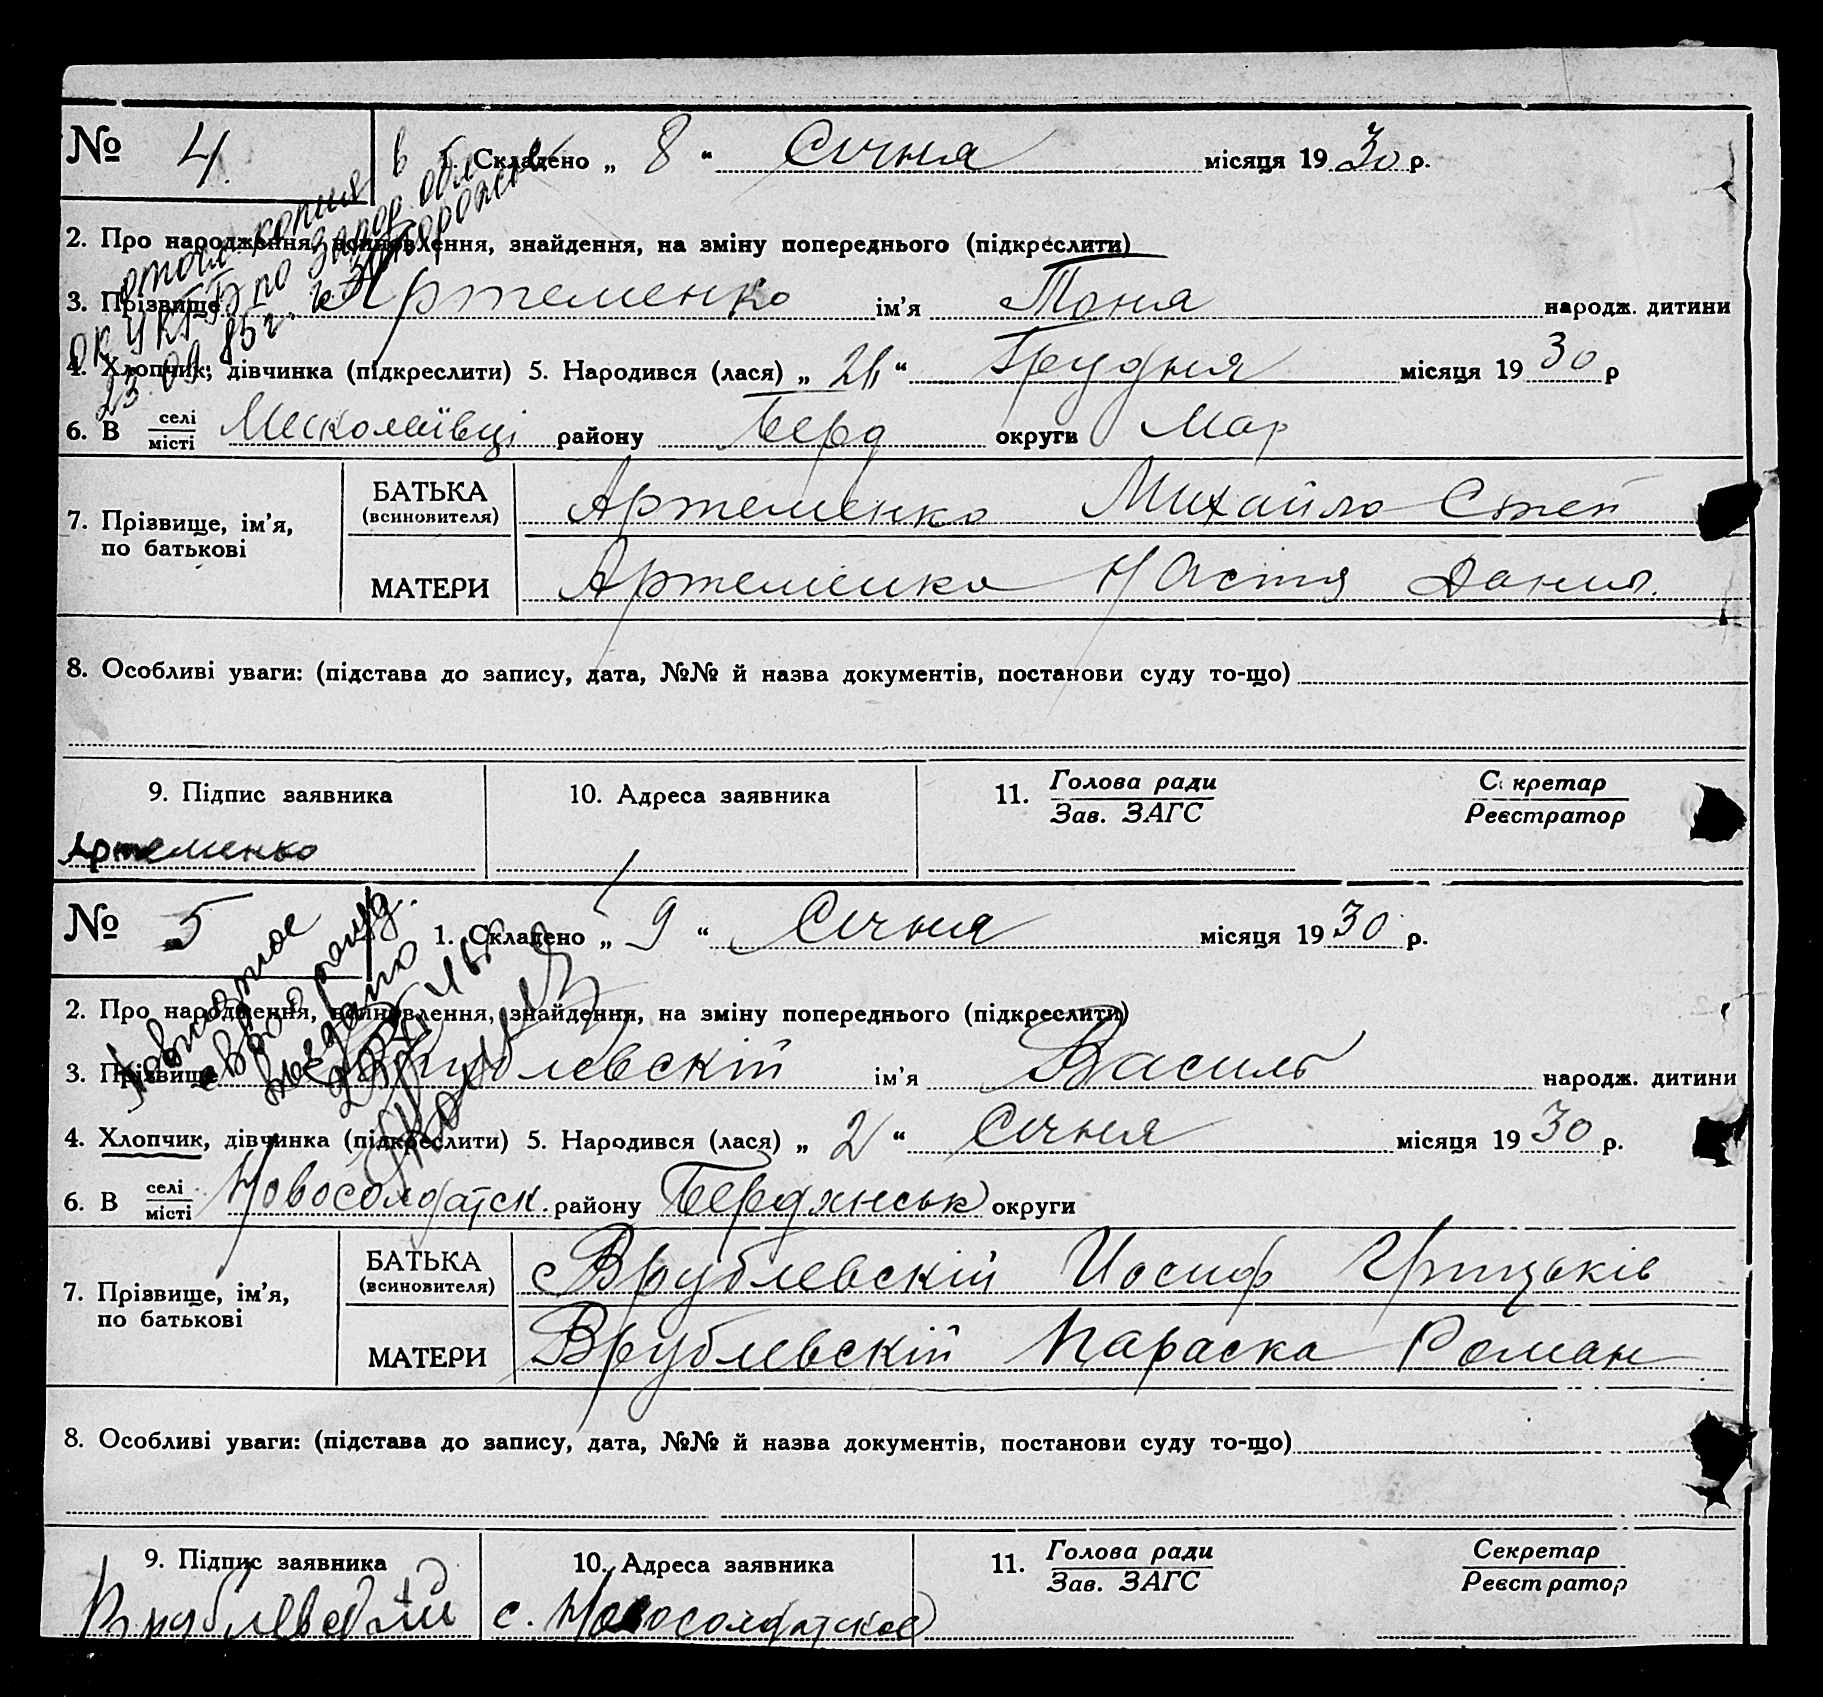 № 4. 1. Складено „ 8 “ Січня місяця 1930 р.
2. Про народження, всиновлення, знайдення, на зміну попереднього (підкреслити)
3. Прізвище Артеменко ім’я Тоня народж. дитини
4. Хлопчик, дівчинка (підкреслити) 5. Народився (лася) „ “ Грудня місяця 1930 р
6. В селі місті району Берд округи Мар
7. Прізвище, ім’я, по батькові
БАТЬКА (всиновителя) Артеменко Михайло Степ
МАТЕРИ Артеменко Настя Данил.
8. Особливі уваги: (підстава до запису, дата, №№ й назва документів, постанови суду то-що)
9. Підпис заявника 10. Адреса заявника 11. Голова ради Зав. ЗАГС Секретар Реєстратор
Артеменко
копия в
ОК УКГБ по Запор. обл
23.09.85г. г. Запорожье
№ 5 1. Складено „ 9 “ Січня місяця 1930 р.
2. Про народження, всиновлення, знайдення, на зміну попереднього (підкреслити)
3. Прізвище Врублевскій ім’я Василь народж. дитини
4. Хлопчик, дівчинка (підкреслити) 5. Народився (лася) „ 2 “ Січня місяця 1930 р.
6. В селі місті Новосолдатск. району Бердянськ округи
7. Прізвище, ім’я, по батькові
БАТЬКА (всиновителя) Врублевскій Иосиф Грицьків
МАТЕРИ Врублевскій Параска Роман
8. Особливі уваги: (підстава до запису, дата, №№ й назва документів, постанови суду то-що)
9. Підпис заявника 10. Адреса заявника 11. Голова ради Зав. ЗАГС Секретар Реєстратор
Врублевский с. Новосолдатское
Повторное
свид. о рожд.
выдано